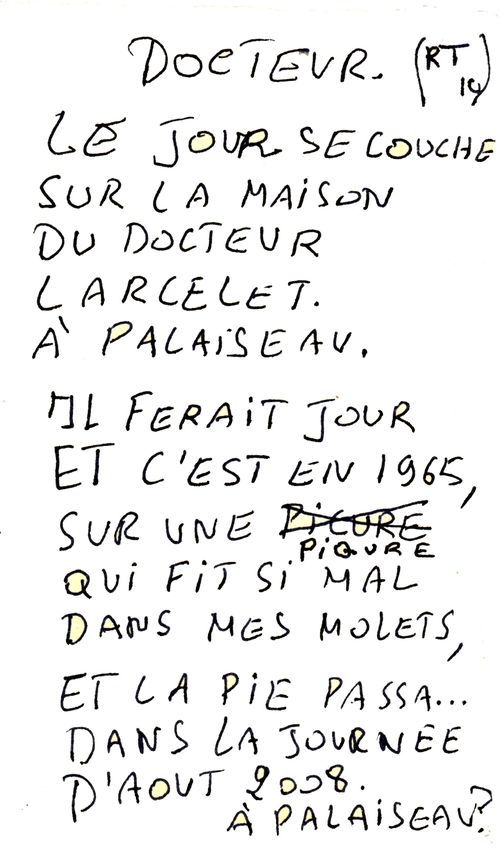 DOCTEUR. (RT 14)
LE JOUR SE COUCHE
SUR LA MAISON
DU DOCTEUR
LARCELET.
À PALAISEAU.
IL FERAIT JOUR
ET C'EST EN 1965,
SUR UNE PICURE
PIQURE
QUI FIT SI MAL
DANS MES MOLETS,
ET LA PIE PASSA...
DANS LA JOURNEE
D'AOUT 2008.
À PALAISEAU?